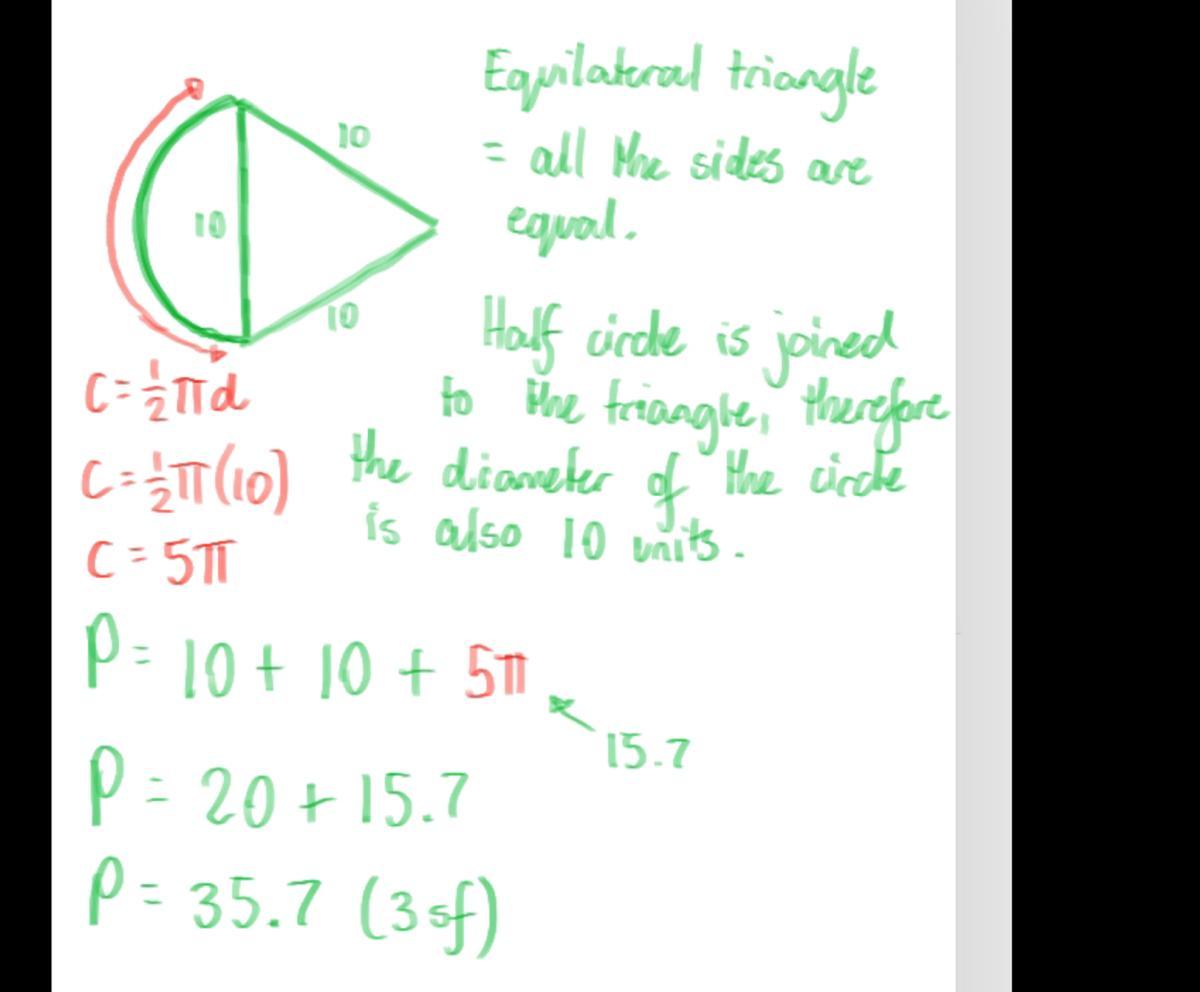 10
10
10
Equilateral triangle
= all the sides are
equal.
Half circle is joined
to the triangle, therefore
the diameter of the circle
is also 10 units.
C = ½πd
C = ½π(10)
C = 5π
P = 10 + 10 + 5π
15.7
P = 20 + 15.7
P = 35.7 (3sf)